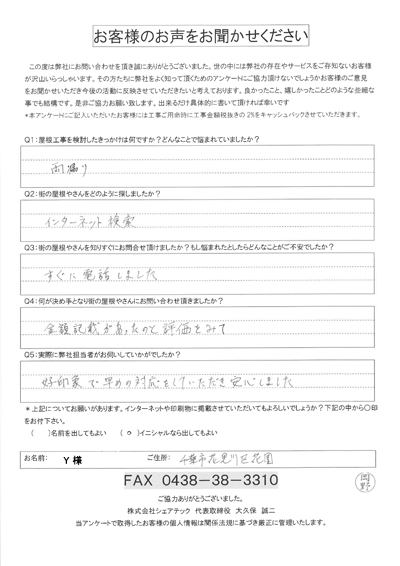 お客様のお声をお聞かせください
この度は弊社にお問い合わせを頂き誠にありがとうございました。世の中には弊社の存在やサービスをご存知ないお客様
が沢山いらっしゃいます。その方たちに弊社をよく知って頂くためのアンケートにご協力頂けないでしょうかお客様のご意見
をお聞かせいただき今後の活動に反映させていただきたいと考えております。良かったこと、嬉しかったことどのような些細な
事でも結構です。是非ご協力お願い致します。出来るだけ具体的に書いて頂ければ幸いです
*本アンケートにご記入いただいたお客様には工事ご用命時に工事金額税抜きの2%をキャッシュバックさせていただきます。
Q1:屋根工事を検討したきっかけは何ですか?どんなことで悩まれていましたか?
雨漏り
Q2:街の屋根やさんをどのように探しましたか?
インターネット検索
Q3:街の屋根やさんを知りすぐにお問合せ頂けましたか?もし悩まれたとしたらどんなことがご不安でしたか?
すぐに電話しました
Q4:何が決め手となり街の屋根やさんにお問い合わせ頂きましたか?
金額記載があったのと評価をみて
Q5:実際に弊社担当者がお伺いしていかがでしたか?
好印象で早めの対応をしていただき安心しました
*上記についてお願いがあります。インターネットや印刷物に掲載させていただいてもよろしいでしょうか?下記の中から〇印
をお付下さい。
( )名前を出してもよい ( o )イニシャルなら出してもよい
お名前: Y様 ご住所: 千葉市花見川区花園
FAX 0438-38-3310
岡野
ご協力ありがとうございました。
株式会社シェアテック 代表取締役 大久保 誠二
当アンケートで取得したお客様の個人情報は関係法規に基づき厳正に管理いたします。